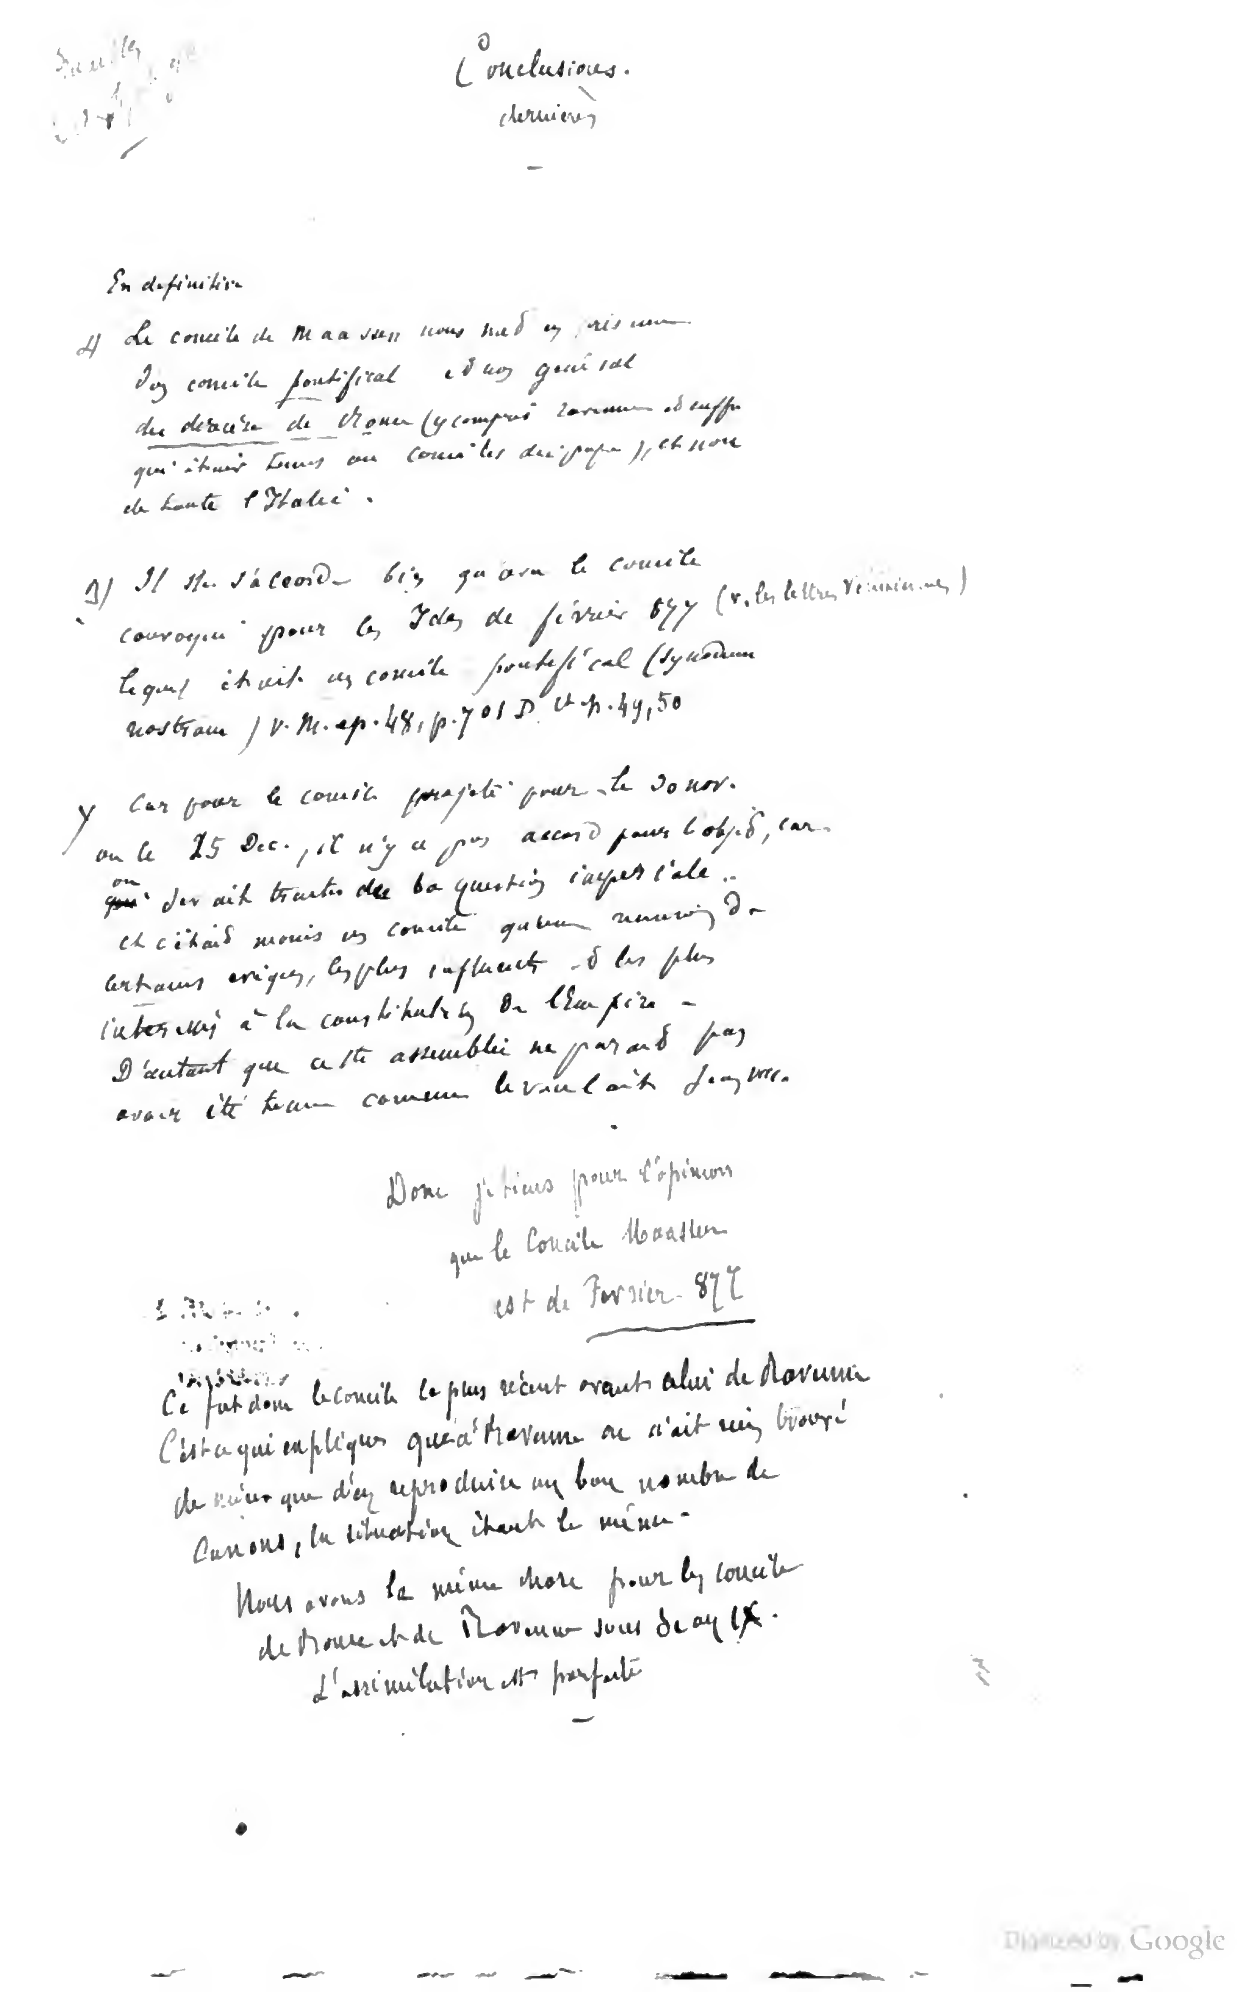 Conclusions.
dernières
En definitive
Le concile de Maassen nous met en
d'un concile pontifical et non général
du diocèse de Rome (y compris Ravenne et suffr.
qui étaient tenus aux conciles du pape), et non
de toute l'Italie.
Il s'accorde bien qu'avec le concile
convoqué pour les Ides de février 877 (v. les lettres
lequel était un concile pontifical (synodum
nostram) v. M. ep. 48, p. 701 D et p. 49, 50
Car pour le concile projeté pour le 30 nov.
ou le 25 Dec., il n'y a pas accord pour l'objet, car
on
devait traiter de la question impériale
et c'était moins un concile qu'une réunion de
certains évêques, les plus influents et les plus
intéressés à la constitution de l'Empire -
D'autant que cette assemblée ne parait pas
avoir été tenue comme le voulait Jean VIII.
Donc je tiens pour l'opinion
que le Concile Maassen
est de Fevrier 877
Ce fut donc le concile le plus récent avant celui de Ravenne
C'est ce qui explique qu'à Ravenne on n'ait rien trouvé
de mieux que d'en reproduire un bon nombre de
Canons, la situation étant la même -
Nous avons la même chose pour les conciles
de Rome et de Ravenne sous Jean IX.
L'assimilation est parfaite
Digitized by Google